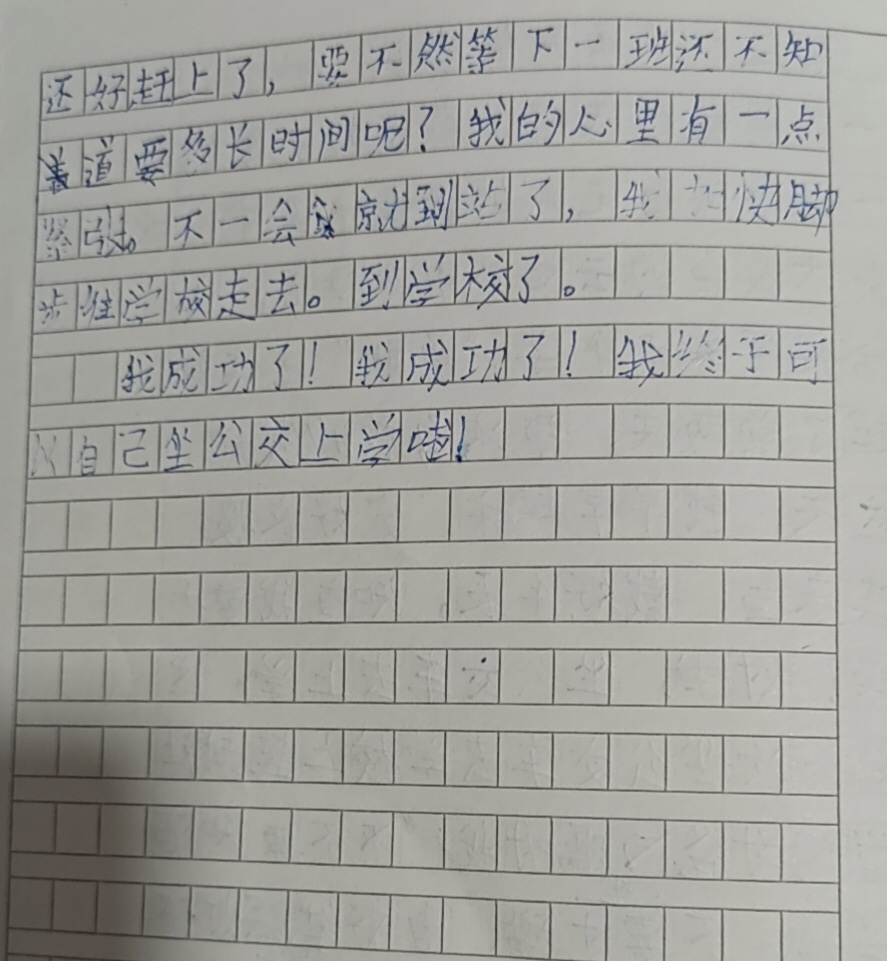 还好赶上了，要不然等下一班还不知
道要多长时间呢？我的心里有一点
紧张。不一会就到站了，我加快脚
步往学校走去。到学校了。
我成功了！我成功了！我终于可
以自己坐公交上学啦！